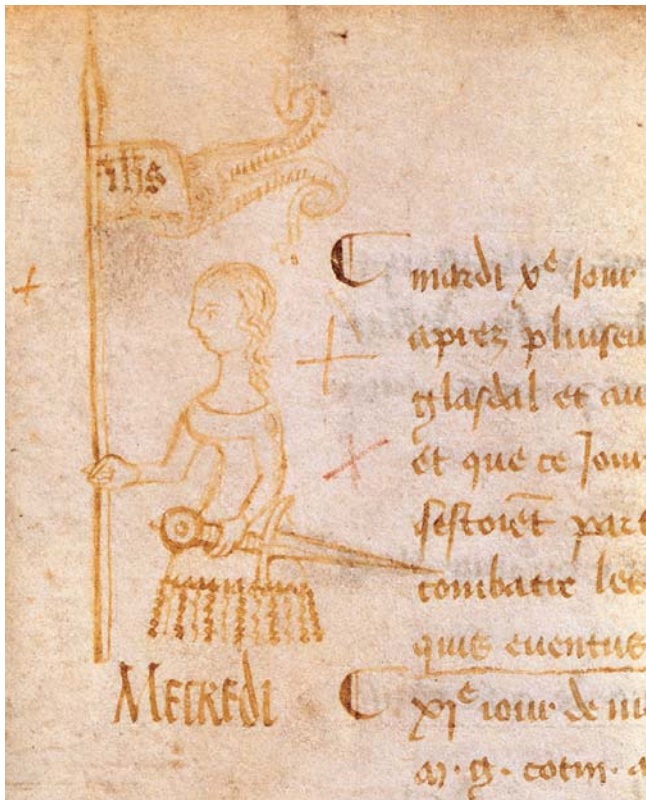 ihs
mardi xᵉ jour
apres pluseu
glasdal et au
et que ce Jour
sestoiēt part
combatre les
quis euentus
Mecredi
xjᵉ iour de m
m. g. cotin. a